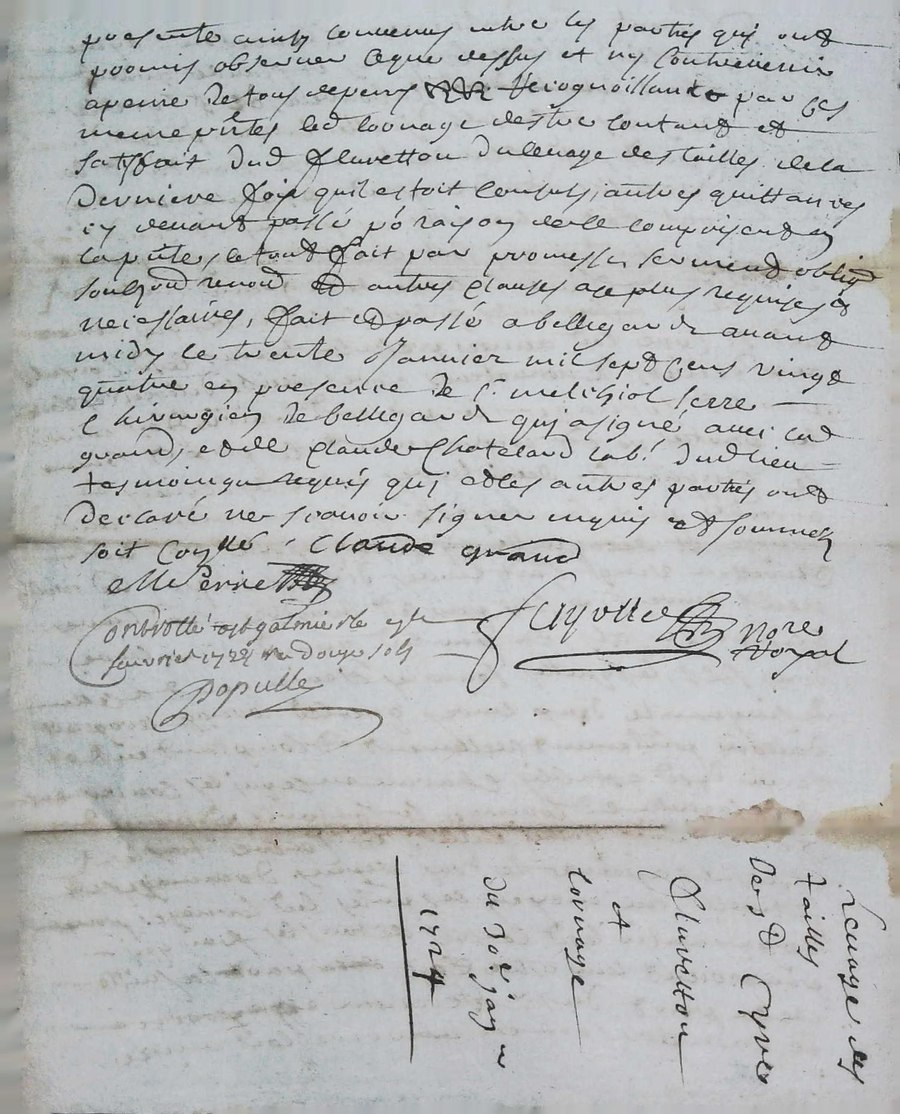 presente ainsy convenus entre les parties quj ont
promis observer ce que dessus et ny contrevenir
a peine de tous depens recognoissant par ces
mesme pntes led louuage destre contant et
satisfait dud fluvetton du levage des tailles de la
derniere fois quil estoit consul, autres quittances
cy devant passé po raison de ce comprises en
la pnte, le tout fait par promesse serment oblig
soub renon et autres clauses a ce plus requises et
necessaires, fait et passé a bellegarde avant
midy le trente Janvier mil sept cens vingt
quatre en presence de sr melchiol serre
chirurgien de bellegarde quj a signé avec led
grand, et de claude Chatelard lab. dud lieu
tesmoins requis quj et les autres parties ont
declaré ne scavoir signer enquis et sommes
soit Coyllé. Claude grand
M Serre
Controllé a st galmier le
fevrier 1724 Rd douze sols
Fayolle Nore Royal
Populle
Levage des
tailles
de st Cyre
fluvetton
et
louuage
du 30e jan er
1724